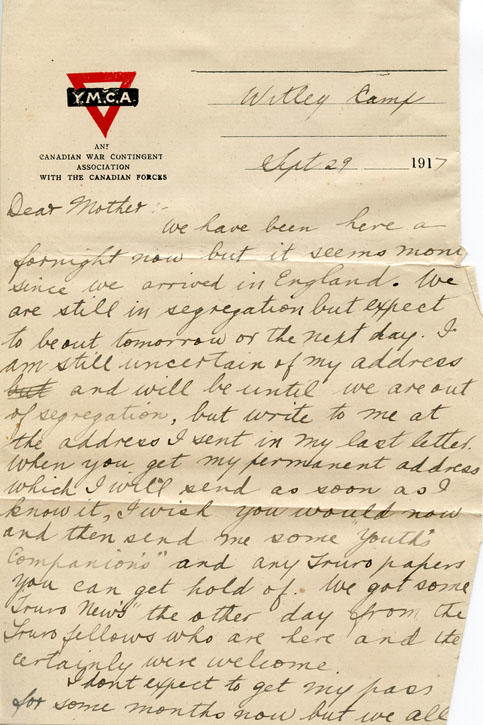 Y.M.C.A.
AND
CANADIAN WAR CONTINGENT
ASSOCIATION
WITH THE CANADIAN FORCES
Witley Camp
Sept 29 1917
Dear Mother :-
We have been here a
fornight now but it seems more
since we arrived in England. We
are still in segregation but expect
to be out tomorrow or the next day. I
am still uncertain of my address
but and will be until we are out
of segregation, but write to me at
the address I sent in my last letter.
When you get my permanent address
which I will send as soon as I
know it, I wish you would now
and then send me some "Youth's
Companion's" and any Truro papers
you can get hold of. We got some
"Truro News" the other day from the
Truro fellows who are here and
certainly were welcome.
I dont expect to get my pass
for some months now but we all